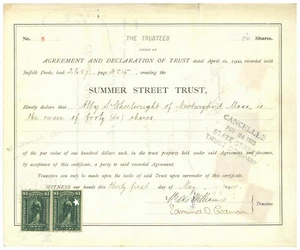 No. 8 THE TRUSTEES 40 Shares.
UNDER AN
AGREEMENT AND DECLARATION OF TRUST dated April 16, recorded with
Suffolk Deeds, book page creating the
SUMMER STREET TRUST,
Hereby declare that Wheelwright of Mass is
the owner of forty (40) shares
of the par value of one hundred dollars each, in the trust property held under said Agreement, and
acceptance of this certificate, a party to said recorded Agreement.
Transfers can only be made upon the books of said Trust upon surrender of this certificate.
WITNESS our hands the thirty first day of May
Williams
Codman
Trustees
CANCELLED
STATE STREET
TRUST